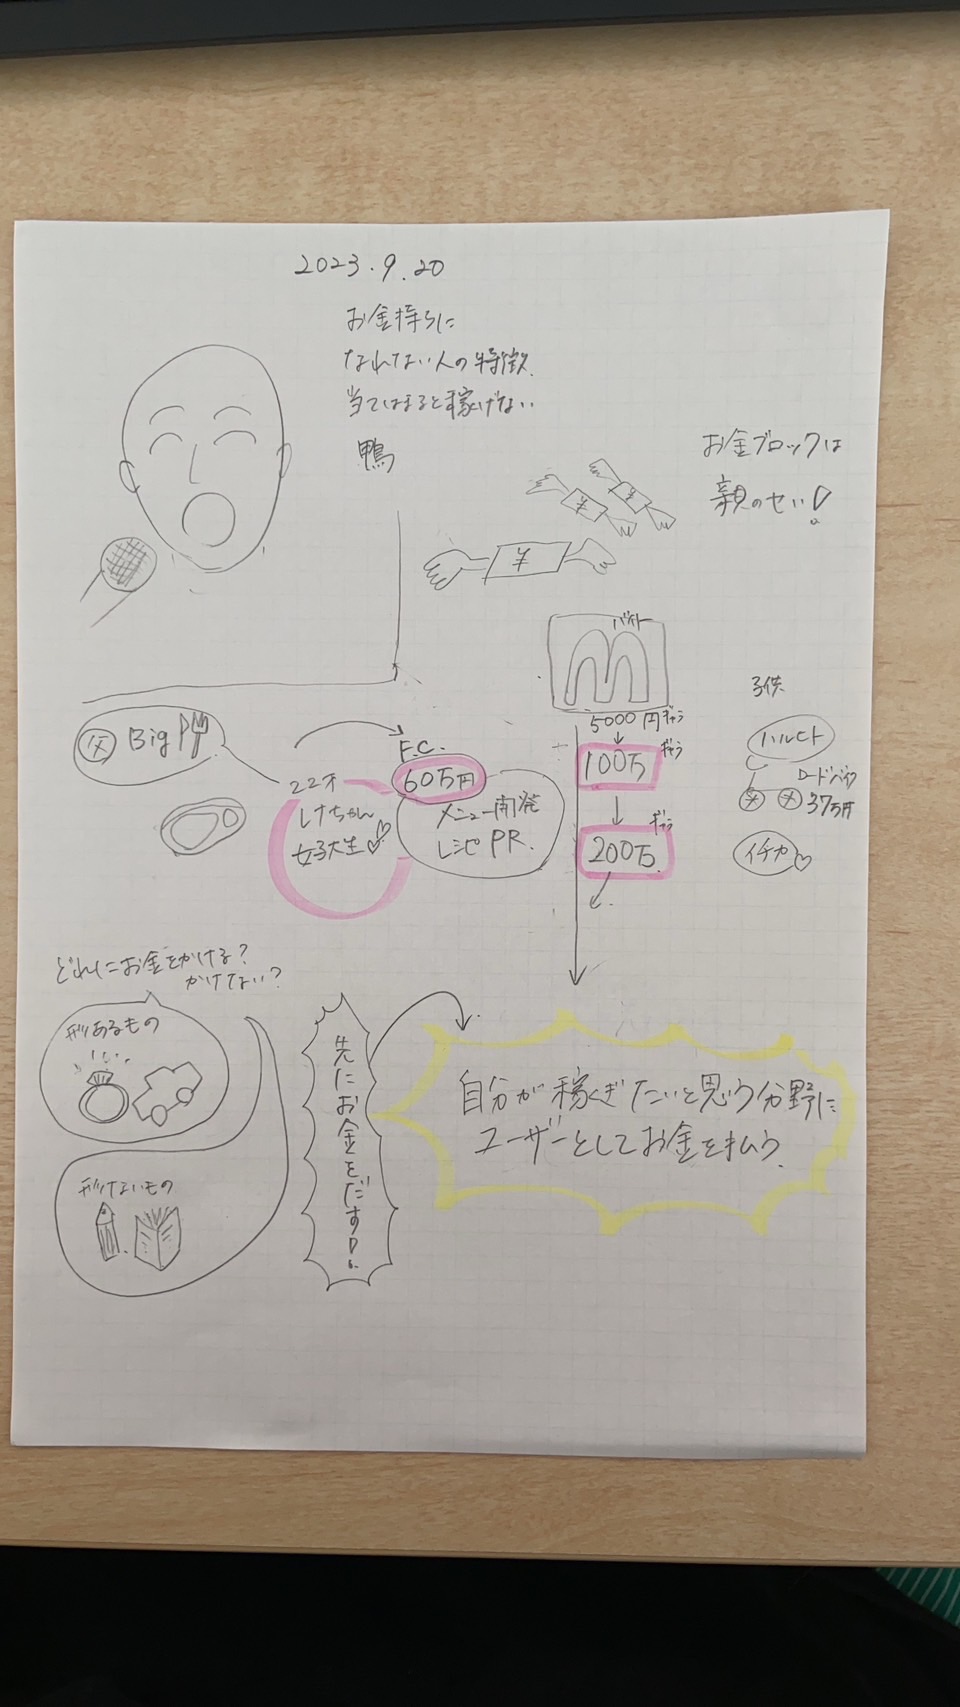 2023.9.20
お金持ちに
なれない人の特徴
当てはまると稼げない
鴨
お金ブロックは
親のせい!
¥
¥
¥
バイト
5000円ギャラ
100万 ギャラ
200万. ギャラ
子供
ハルヒト
ロードバイク
37万円
イチカ
父 Big
22才
しなちゃん
女子大生
F.C.
60万円
メニュー開発
レシピ PR.
どれにお金をかける?
かけない?
形あるもの
形けないもの
先にお金をだす!
自分が稼ぎたいと思う分野に
ユーザーとしてお金を払う.